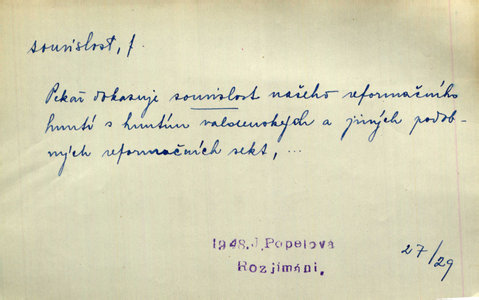 souvislost, f.
Pekař dokazuje souvislost našeho reformačního
hnutí s hnutím valdenských a jiných podob-
ných reformačních sekt, ...
1948. J. Popelová
Rozjímání.
27/29